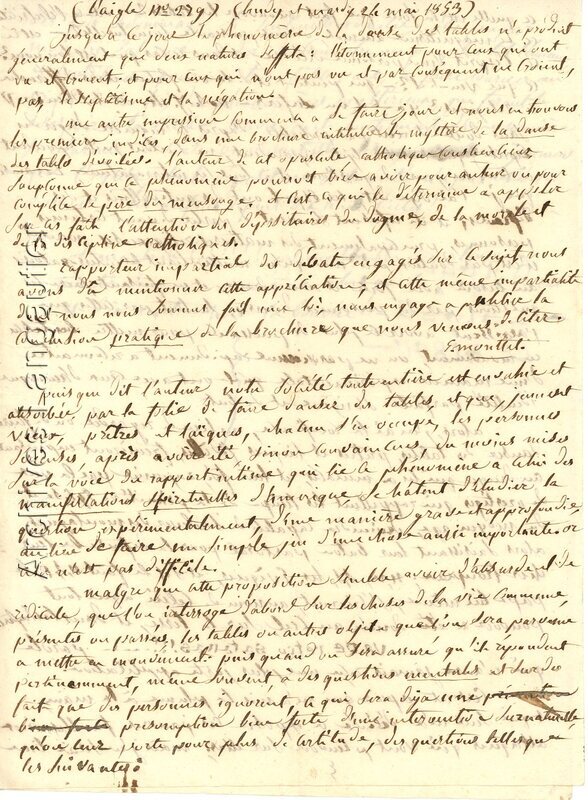 (l'aigle No 279) (lundy et mardy 24 mai 1853)
jusqu'a ce jour le phenomene de la danse des tables n'a produit
généralement que deux natures d'effets: l'étonnement pour ceux qui ont
vu et croient. et pour ceux qui n'ont pas vu et par conséquent ne croient
pas, le septisisme et la négation.
une autre impression commence a se faire jour et nous en trouvons
les premiers indices, dans une brochure intitulée le mystère de la danse
des tables dévoilée. l'auteur de cet opuscule, catholique
soupçonne que ce phénomène pourroit bien avoir pour auteur ou pour
complice le père du mensonge, et c'est ce qui le détermine a appeler
sur ces faits l'attention des dépositaires du dogme, de la morale et
de la discipline catholiques.
rapporteur impartial des débats engagés sur ce sujet nous
avons dû mentionner cette appréciation; et cette même impartialité
dont nous nous sommes fait une loi, nous engage a publier la
conclusion pratique de la brochure que nous venons de citer.
E. monttet.
Puisque dit l'auteur notre société toute entière est envahie et
absorbée, par la folie de faire danser des tables, et que, jeunes et
vieux, prêtres et laïques, chacun s'en occupe, les personnes
après avoir été sinon convaincues, du moins mises
sur la voie du rapport intime qui lie ce phénomène a celui des
manifestations spirituelles d'Amérique se hâtent d'étudier la
question expérimentalement, d'une manière grave et approfondie
au lieu de faire un simple jeu d'une chose aussi importante. or
ce n'est pas difficile.
malgré que cette proposition semble avoir d'absurde et de
ridicule, que l'on interroge d'abord sur les choses de la vie commune,
présentes ou passées, les tables ou autres objets que l'on sera parvenu
a mettre en mouvement. puis quand on sera assuré qu'ils répondent
pertinemment, même souvent, a des questions mentales et sur des
fait que des personnes ignorent, ce qui sera déja une
bien forte presomption bien forte d'une intervention surnaturelle
qu'on leur porte pour plus de certitude, des questions telles que
les suivantes
Archives Jangouillot